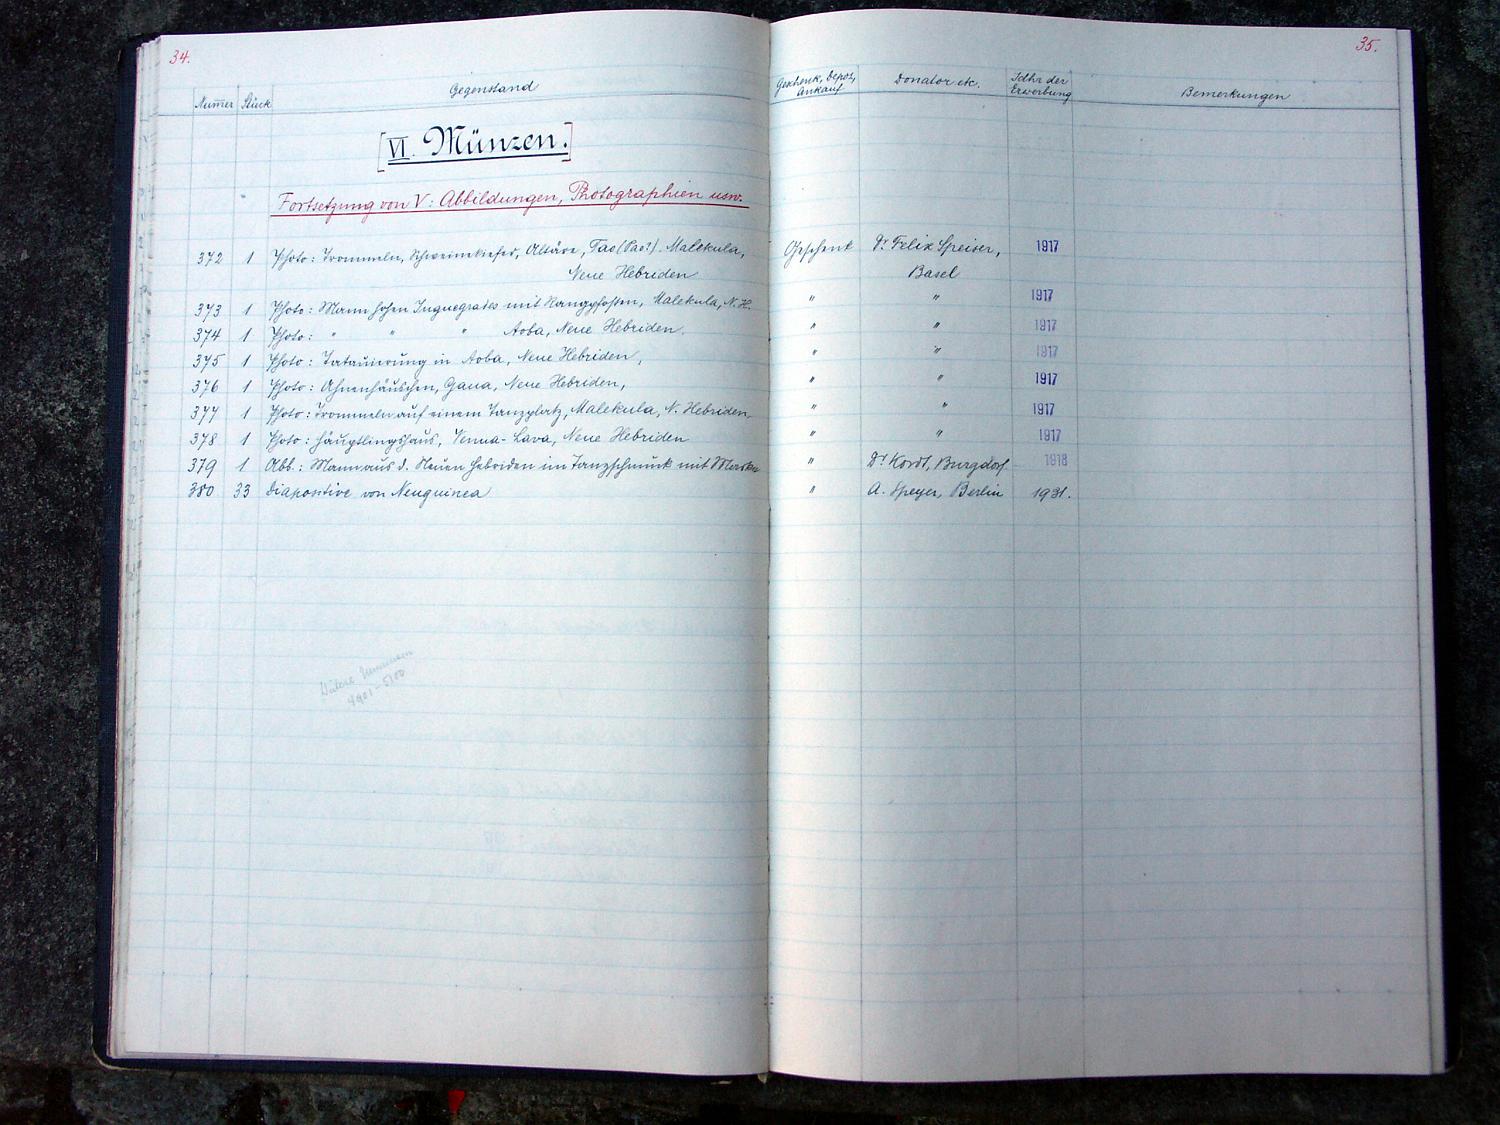 34.
35.
Numer Stück Gegenstand Geschenk, Depos, Ankauf Donator etc. Jahr der Erwerbung Bemerkungen
[VI. Münzen.]
Fortsetzung von V: Abbildungen, Photographien usw.
372 1 Photo: Trommeln, Schweinekiefer, Altäre, Tao (Pao?). Malekula, Geschenk Dr. Felix Speiser, 1917
Neue Hebriden Basel
373 1 Photo: Mann hohen Suquegrades mit Rangpfosten, Malekula, N.H. " " 1917
374 1 Photo: " " " Aoba, Neue Hebriden. " " 1917
375 1 Photo: Tatauierung in Aoba, Neue Hebriden, " " 1917
376 1 Photo: Ahnenhäuschen, Gaua, Neue Hebriden, " " 1917
377 1 Photo: Trommeln auf einem Tanzplatz, Malekula, N. Hebriden, " " 1917
378 1 Photo: Häuptlingshaus, Venua-Lava, Neue Hebriden " " 1917
379 1 Abb.: Mann aus d. Neuen Hebriden im Tanzschmuck mit Masken " Dr. Kordt, Burgdorf 1918
380 33 Diapositive von Neuguinea " A. Speyer, Berlin 1931.
4901-5100